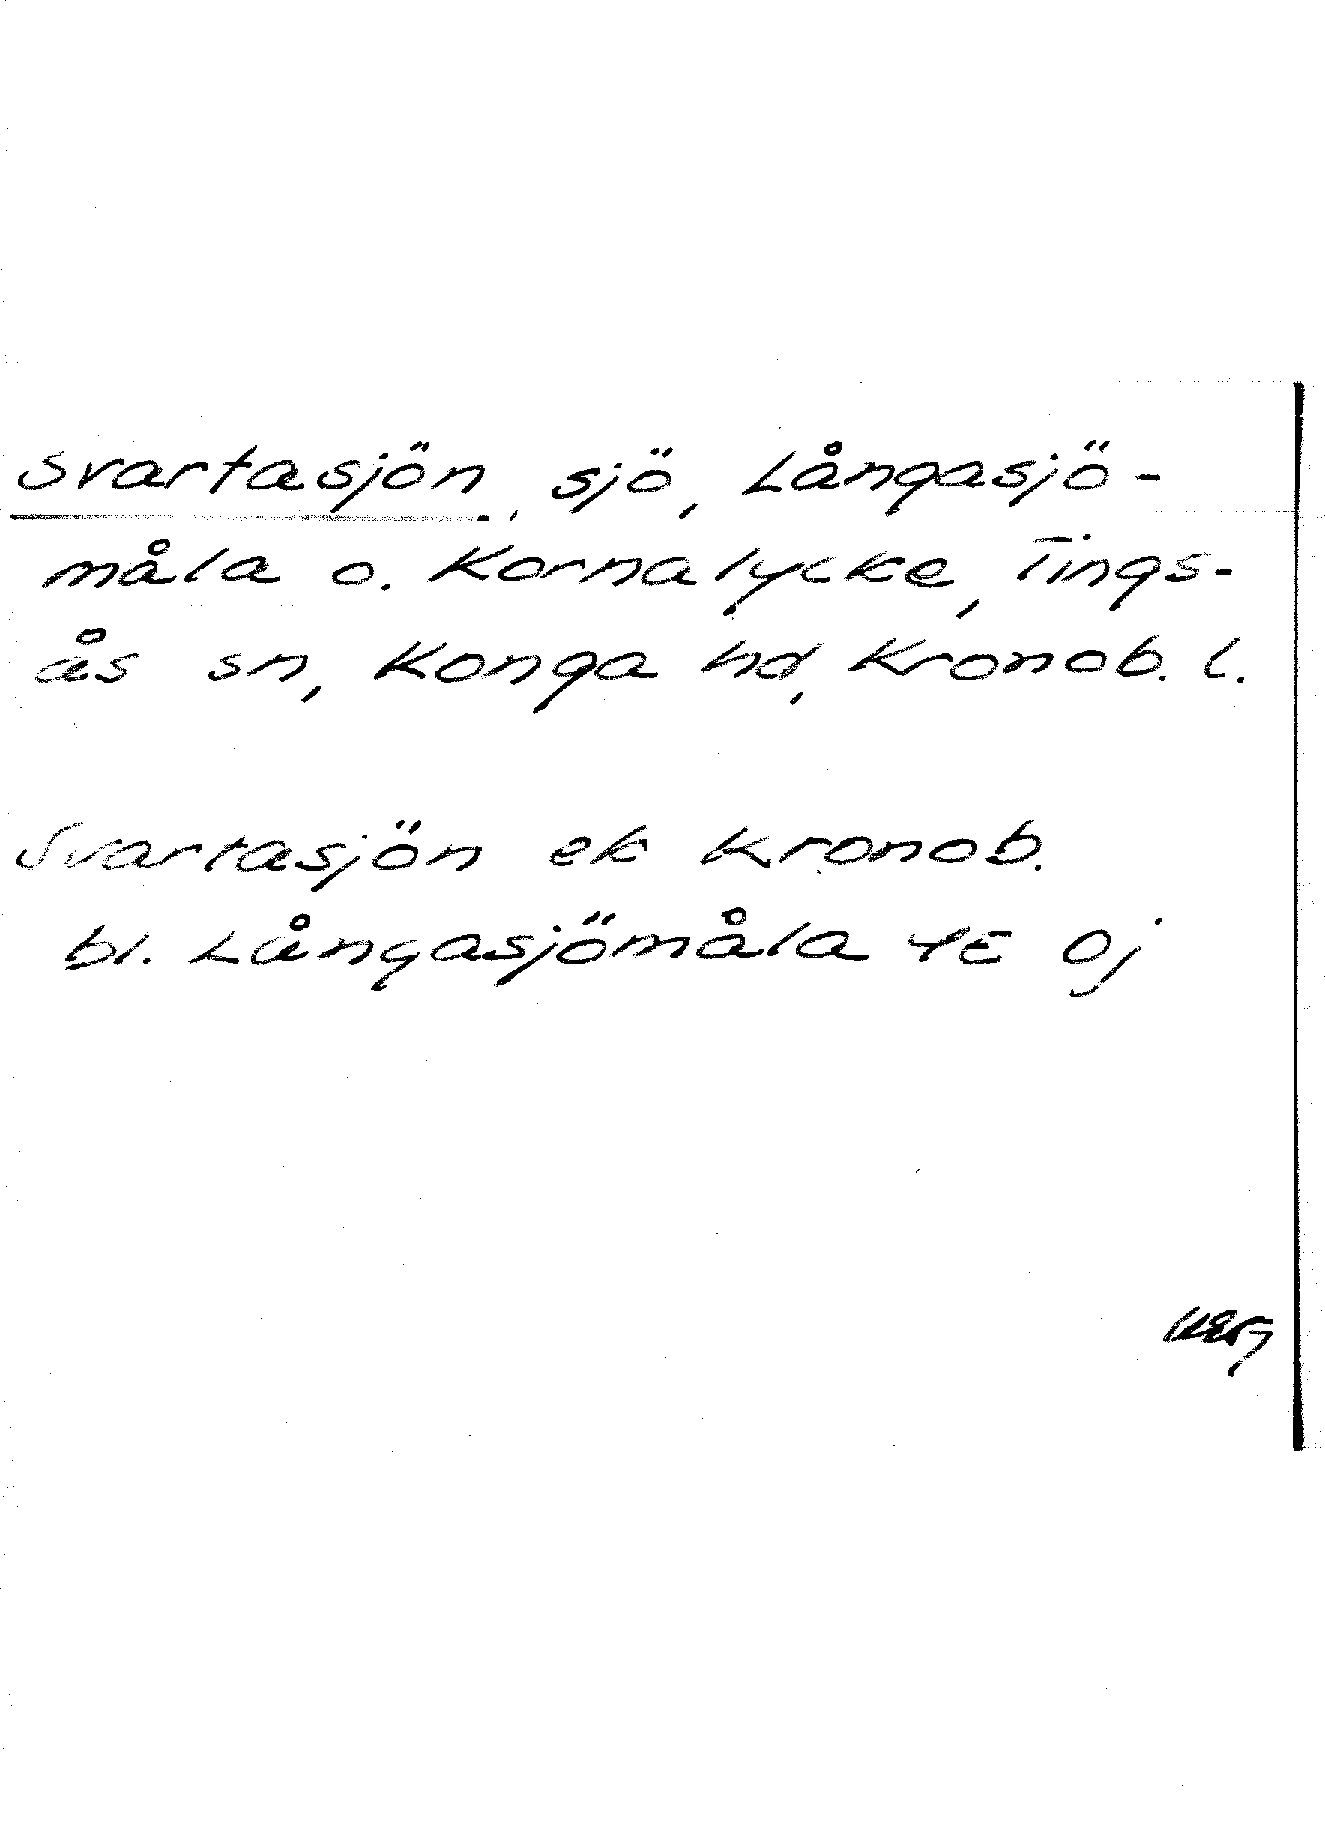 Svartasjön, sjö, Långasjö-
måla o. Kornalycke, Tings-
ås sn, Konga hd, Kronob. l.
Svartasjön ek Kronob.
bl. Långasjömåla 4E Oj